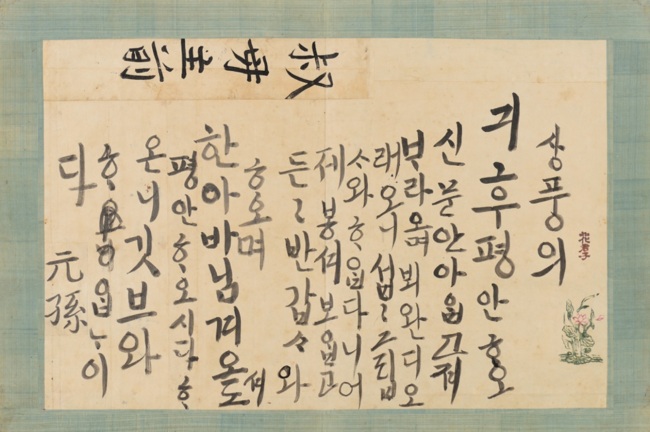 叔母主前
상풍의
긔후평안ᄒᆞ오
신 문안 아ᄋᆞᆸ고져
ᄇᆞ라오며 뵈완디 오
래오니 섭〻 그립
ᄉᆞ와 ᄒᆞᄋᆞᆸ다니 어
제 봉셔 보ᄋᆞᆸ고
든〻 반갑ᄉᆞ와
ᄒᆞ오며
한아바님 겨오셔도
평안ᄒᆞ오시다 ᄒᆞ
온니 깃브와
ᄒᆞᄋᆞᆸᄂᆞ이
다 元孫
花君子